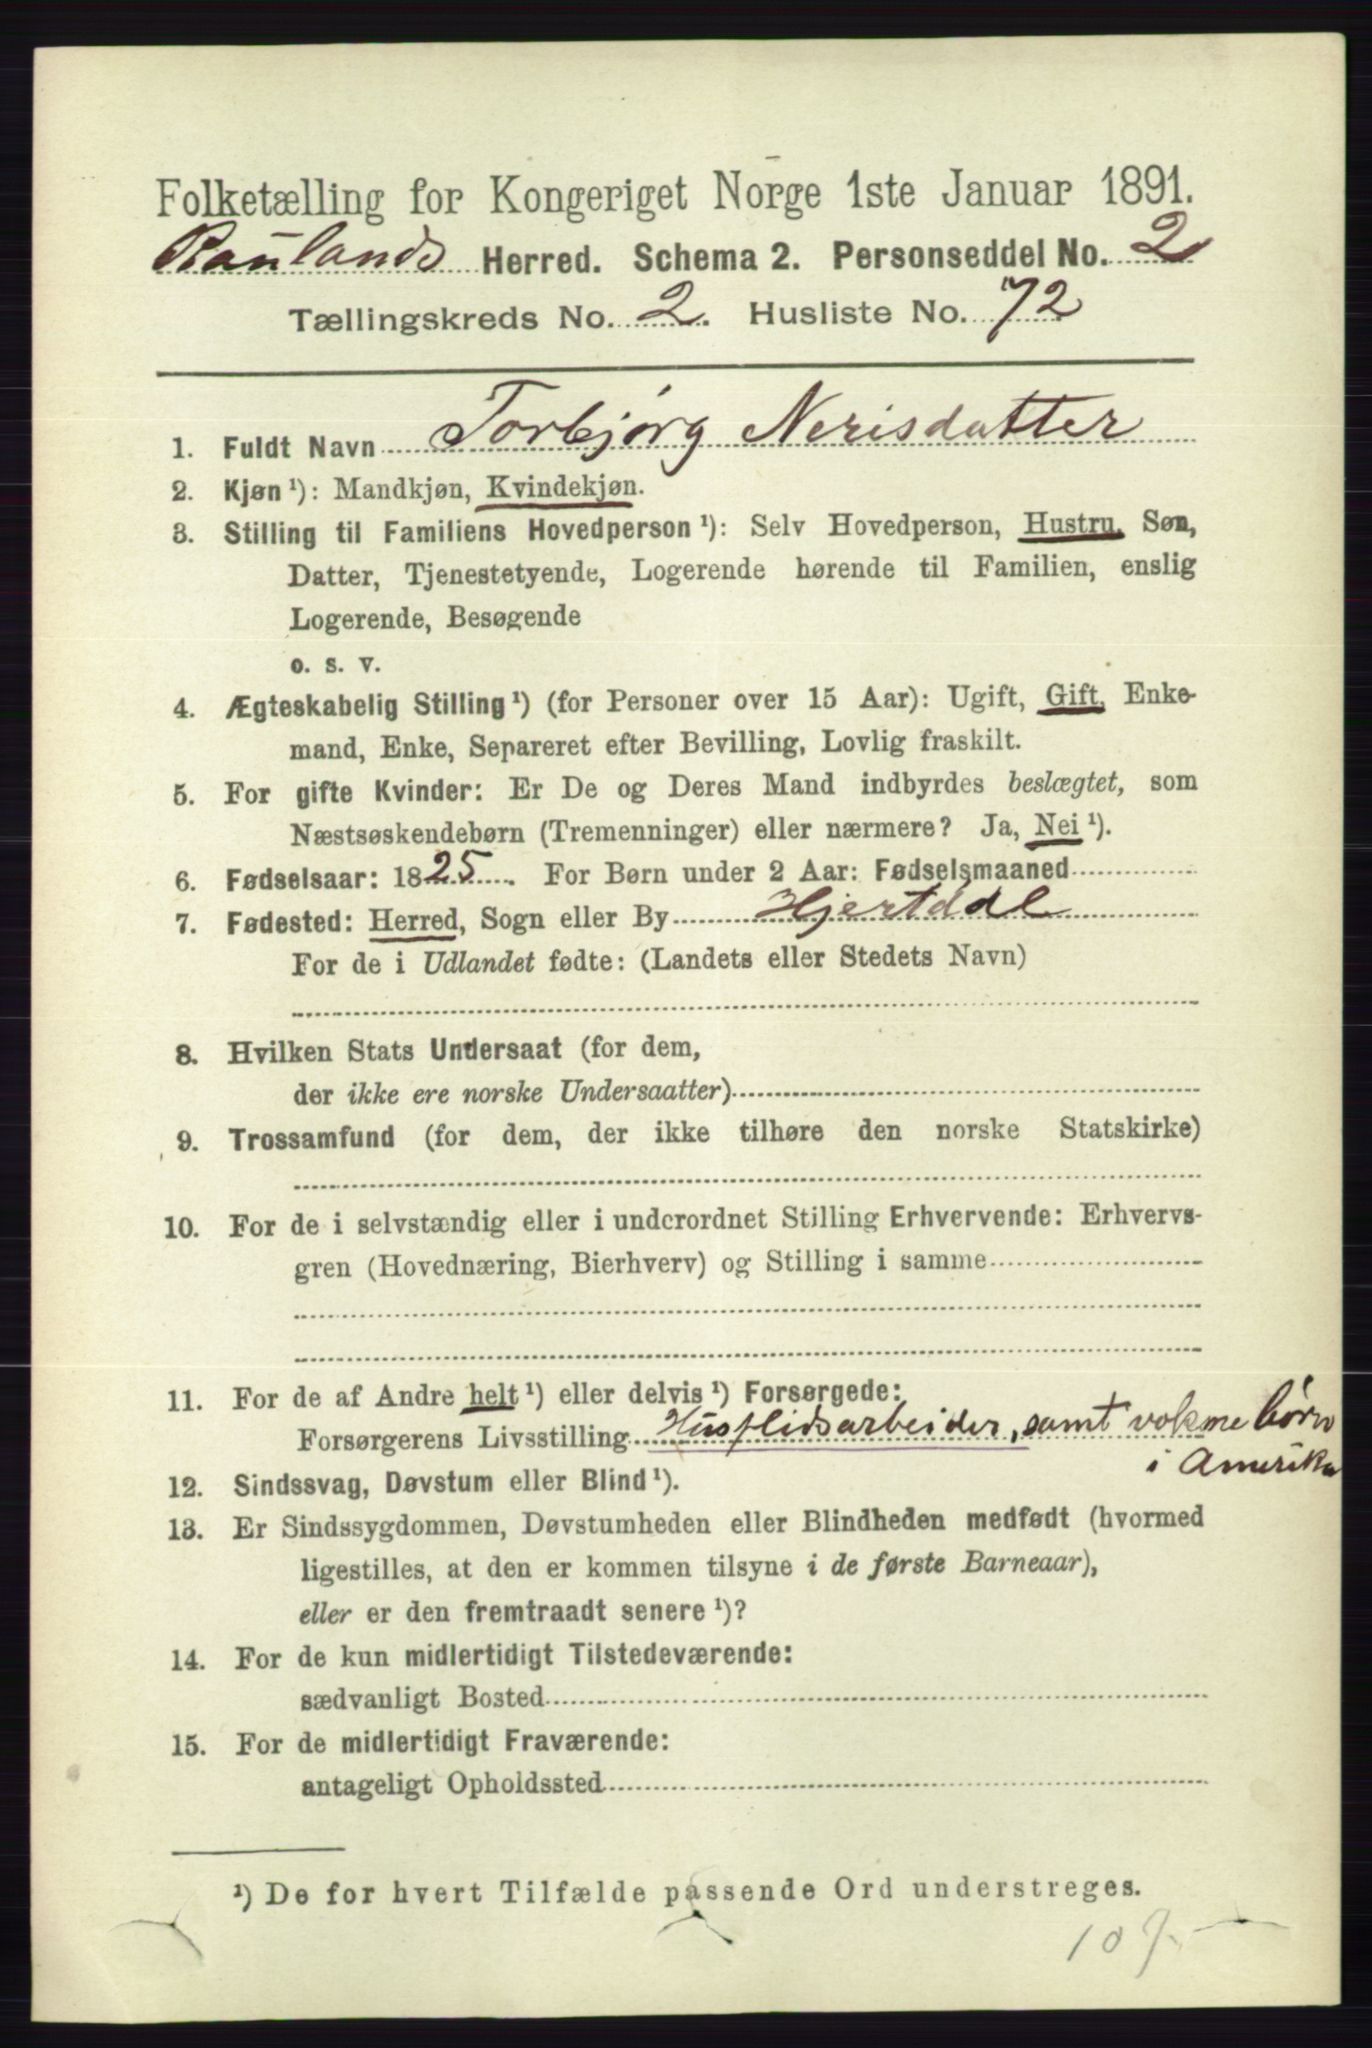 Folketælling for Kongeriget Norge 1ste Januar 1891.
Raulands Herred. Schema 2. Personseddel No. 2
Tællingskreds No. 2. Husliste No. 72
1. Fuldt Navn Torbjørg Nerisdatter
2. Kjøn ¹): Mandkjøn, Kvindekjøn.
3. Stilling til Familiens Hovedperson ¹): Selv Hovedperson, Hustru, Søn,
Datter, Tjenestetyende, Logerende hørende til Familien, enslig
Logerende, Besøgende
o. s. v.
4. Ægteskabelig Stilling ¹) (for Personer over 15 Aar): Ugift, Gift, Enke-
mand, Enke, Separeret efter Bevilling, Lovlig fraskilt.
5. For gifte Kvinder: Er De og Deres Mand indbyrdes beslægtet, som
Næstsøskendebørn (Tremenninger) eller nærmere? Ja, Nei ¹).
6. Fødselsaar: 1825. For Børn under 2 Aar: Fødselsmaaned
7. Fødested: Herred, Sogn eller By Hjertdal
For de i Udlandet fødte: (Landets eller Stedets Navn)
8. Hvilken Stats Undersaat (for dem,
der ikke ere norske Undersaatter)
9. Trossamfund (for dem, der ikke tilhøre den norske Statskirke)
10. For de i selvstændig eller i underordnet Stilling Erhvervende: Erhvervs-
gren (Hovednæring, Bierhverv) og Stilling i samme
11. For de af Andre helt ¹) eller delvis ¹) Forsørgede:
Forsørgerens Livsstilling Husflidsarbeider, samt voksne børn
i Amerika
12. Sindssvag, Døvstum eller Blind ¹).
13. Er Sindssygdommen, Døvstumheden eller Blindheden medfødt (hvormed
ligestilles, at den er kommen tilsyne i de første Barneaar),
eller er den fremtraadt senere ¹)?
14. For de kun midlertidigt Tilstedeværende:
sædvanligt Bosted
15. For de midlertidigt Fraværende:
antageligt Opholdssted
¹) De for hvert Tilfælde passende Ord understreges.